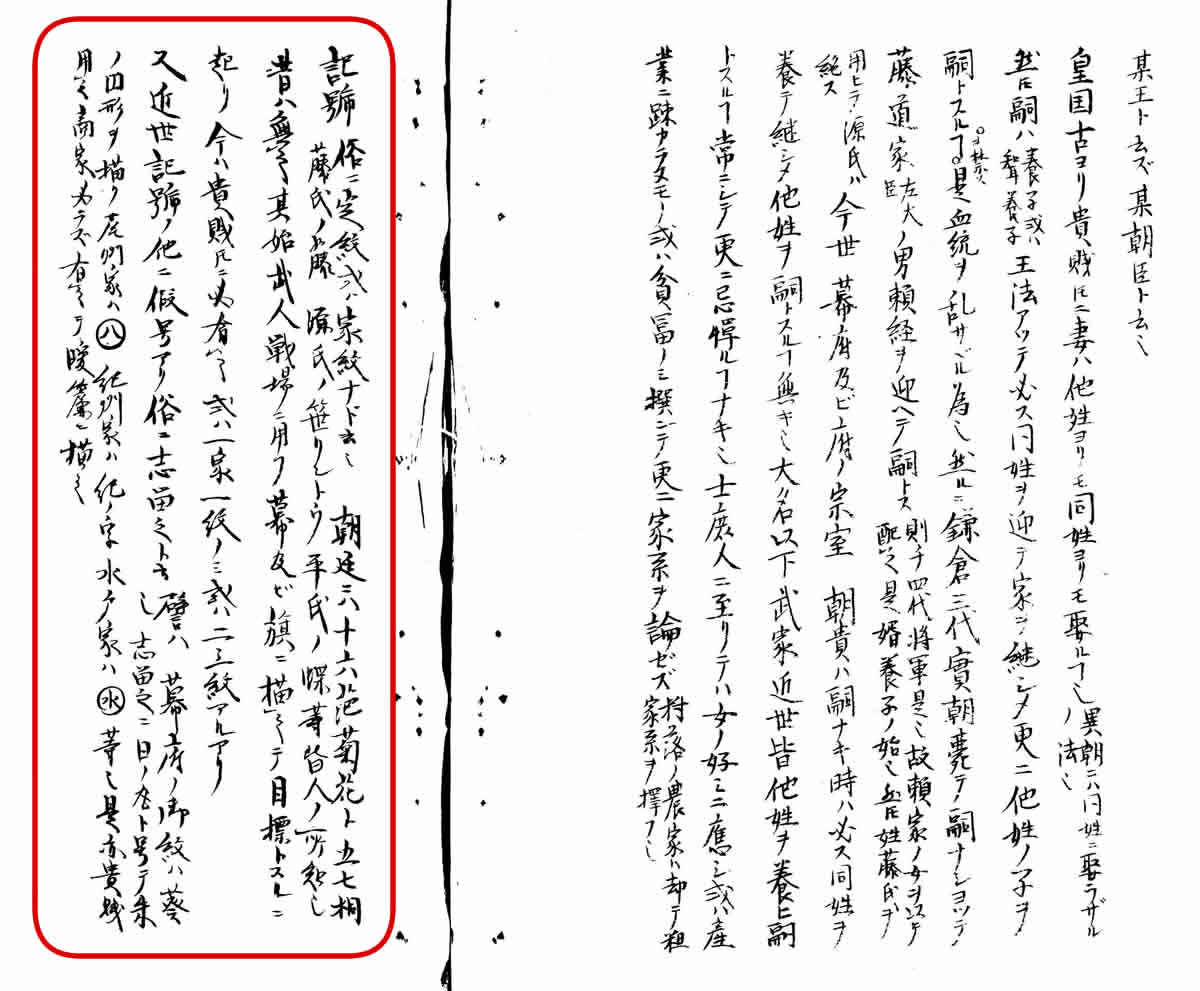 某王ト云ズ某朝臣ト云也
皇国古ヨリ貴賎トモニ妻ハ他姓ヨリモ同姓ヨリモ娶ルコト也
異朝ニハ同姓ニ娶ラザル
ノ法也
然トモ嗣ハ
養子或ハ
聟養子
王法アツテ必ス同姓ヲ迎テ家ヲ継シメ更ニ他姓ノ子ヲ
嗣トスルコト
ヲ禁ス
是血統ヲ乱サザル為也然ルニ鎌倉三代實朝薨テ嗣ナシヨツテ
藤道家
左大
臣
ノ男頼経ヲ迎ヘテ嗣トス
則チ四代将軍是也故頼家ノ女ヲ以テ
配之是婿養子ノ始也然トモ姓藤氏ヲ
用ヒテ源氏ハ
絶ス
今世 幕府及ビ上府ノ宗室 朝貴ハ嗣ナキ時ハ必ス同姓ヲ
養テ継シメ他姓ヲ嗣トスルコト無キ也大名以下武家近世皆他姓ヲ養ヒ嗣
トスルコト常ニシテ更ニ忌憚ルコトナキ也士庶人ニ至リテハ女ノ好ミニ應シ或ハ産
業ニ疎カラヌモノ或ハ貧富ノミ撰ビテ更ニ家系ヲ論ゼズ
村落ノ農家ハ却テ粗
家系ヲ擇フ也
記號
俗ニ定紋或ハ家紋ナド云也 朝廷ニハ十六葩菊花ト五七桐
藤氏ノ藤 源氏ノ笹リンドウ平氏ノ蝶等昔人ノ所知也
昔ハ無之其始武人戦場ニ用フ幕及ビ旗ニ描之テ目標トスルニ
起リ今ハ貴賎トモニ必有之或ハ一家一紋ノミ或ハ二三紋アルアリ
又近世記號ノ他ニ假号アリ俗ニ志留之ト云
譬ハ 幕府ノ御紋ハ葵
也 志留之ニ日ノ丸ト号テ朱
ノ円形ヲ描ク尾州家ハ㊇紀州家ハ紀ノ字水戸家ハ㊌等也是亦貴賎
用之商家必ラズ有之テ暖簾ニ描之